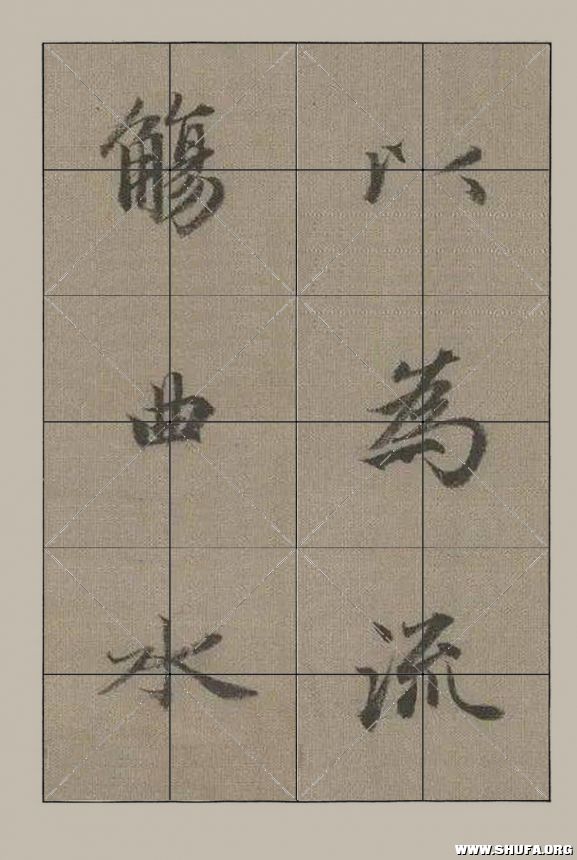 以為流
觴曲水
WWW.SHUFA.ORG